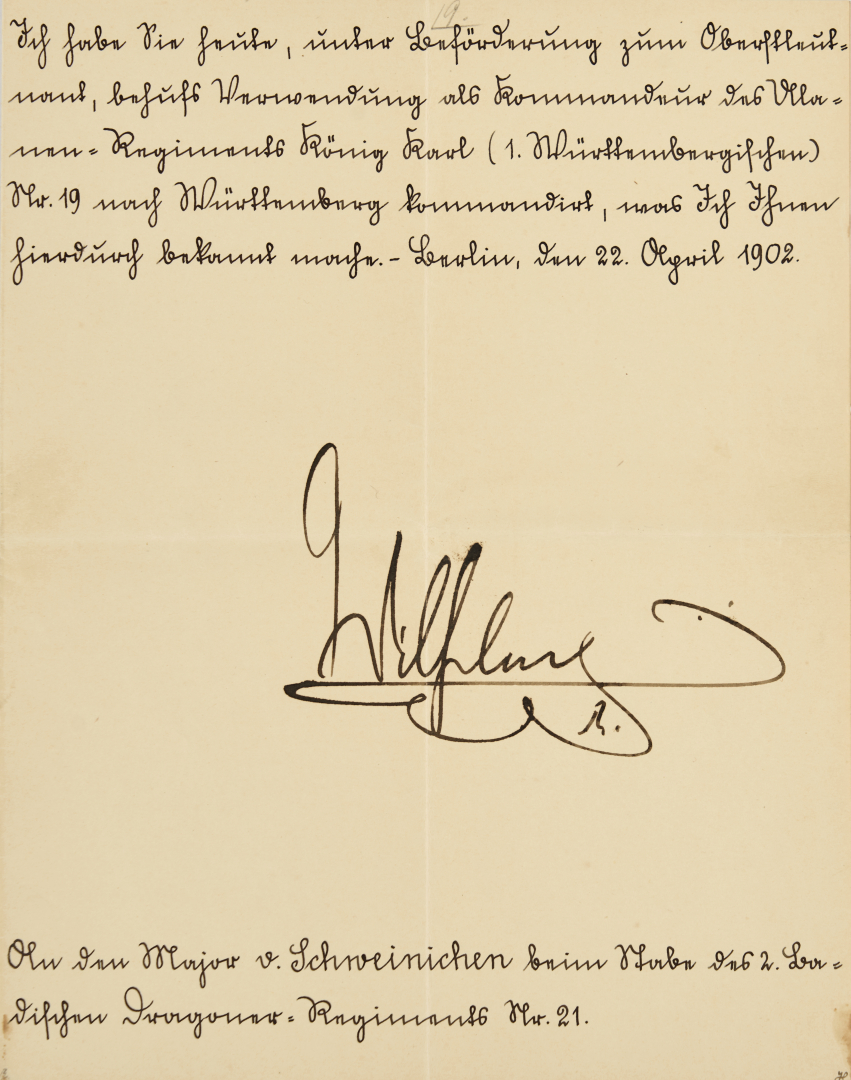 19.
Ich habe Sie heute, unter Beförderung zum Oberstleut-
nant, behufs Verwendung als Kommandeur des Ula-
nen-Regiments König Karl (1. Württembergischen)
Nr. 19 nach Württemberg kommandirt, was Ich Ihnen
hierdurch bekannt mache. - Berlin, den 22. April 1902.
Wilhelm
R.
An den Major v. Schweinichen beim Stabe des 2. Ba-
dischen Dragoner-Regiments Nr. 21.